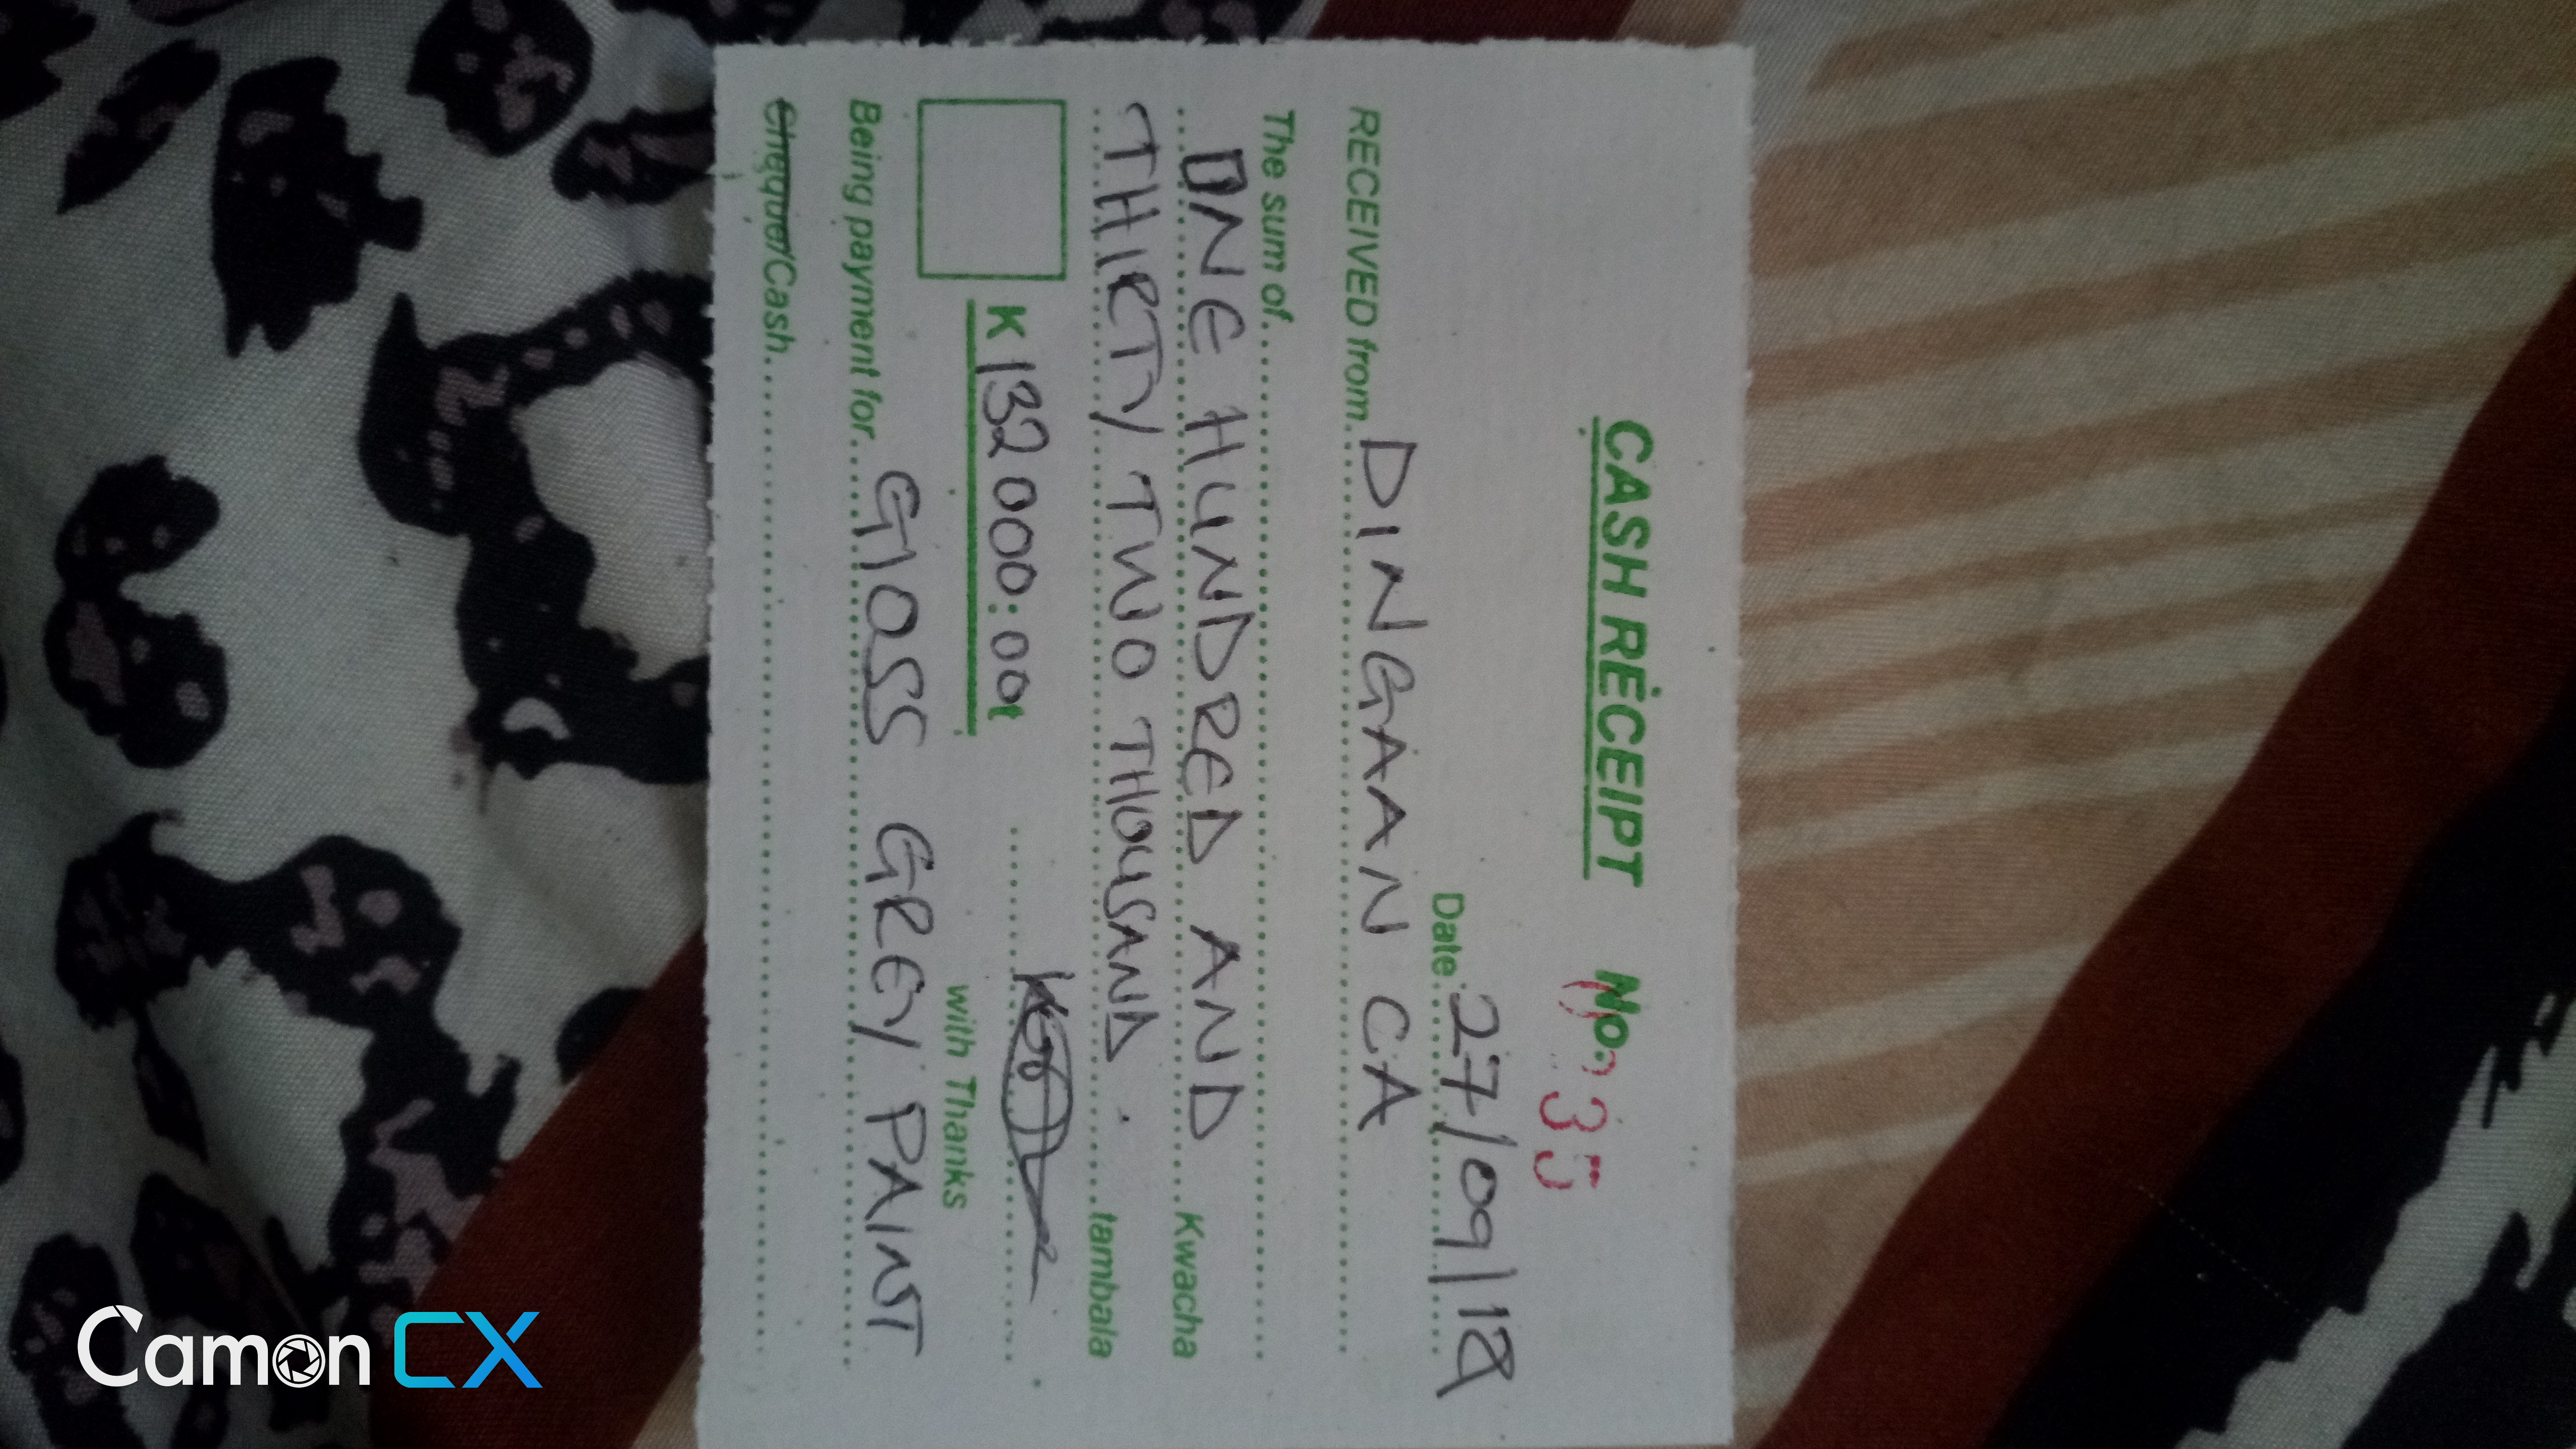 CASH RECEIPT No. 35
Date 27/09/18
RECEIVED from DINGAAN CA
The sum of
ONE HUNDRED AND Kwacha
THIRTY TWO THOUSAND. tambala
K 132 000:00t
with Thanks
Being payment for GLOSS GREY PAINT
Cheque/Cash
Camon CX